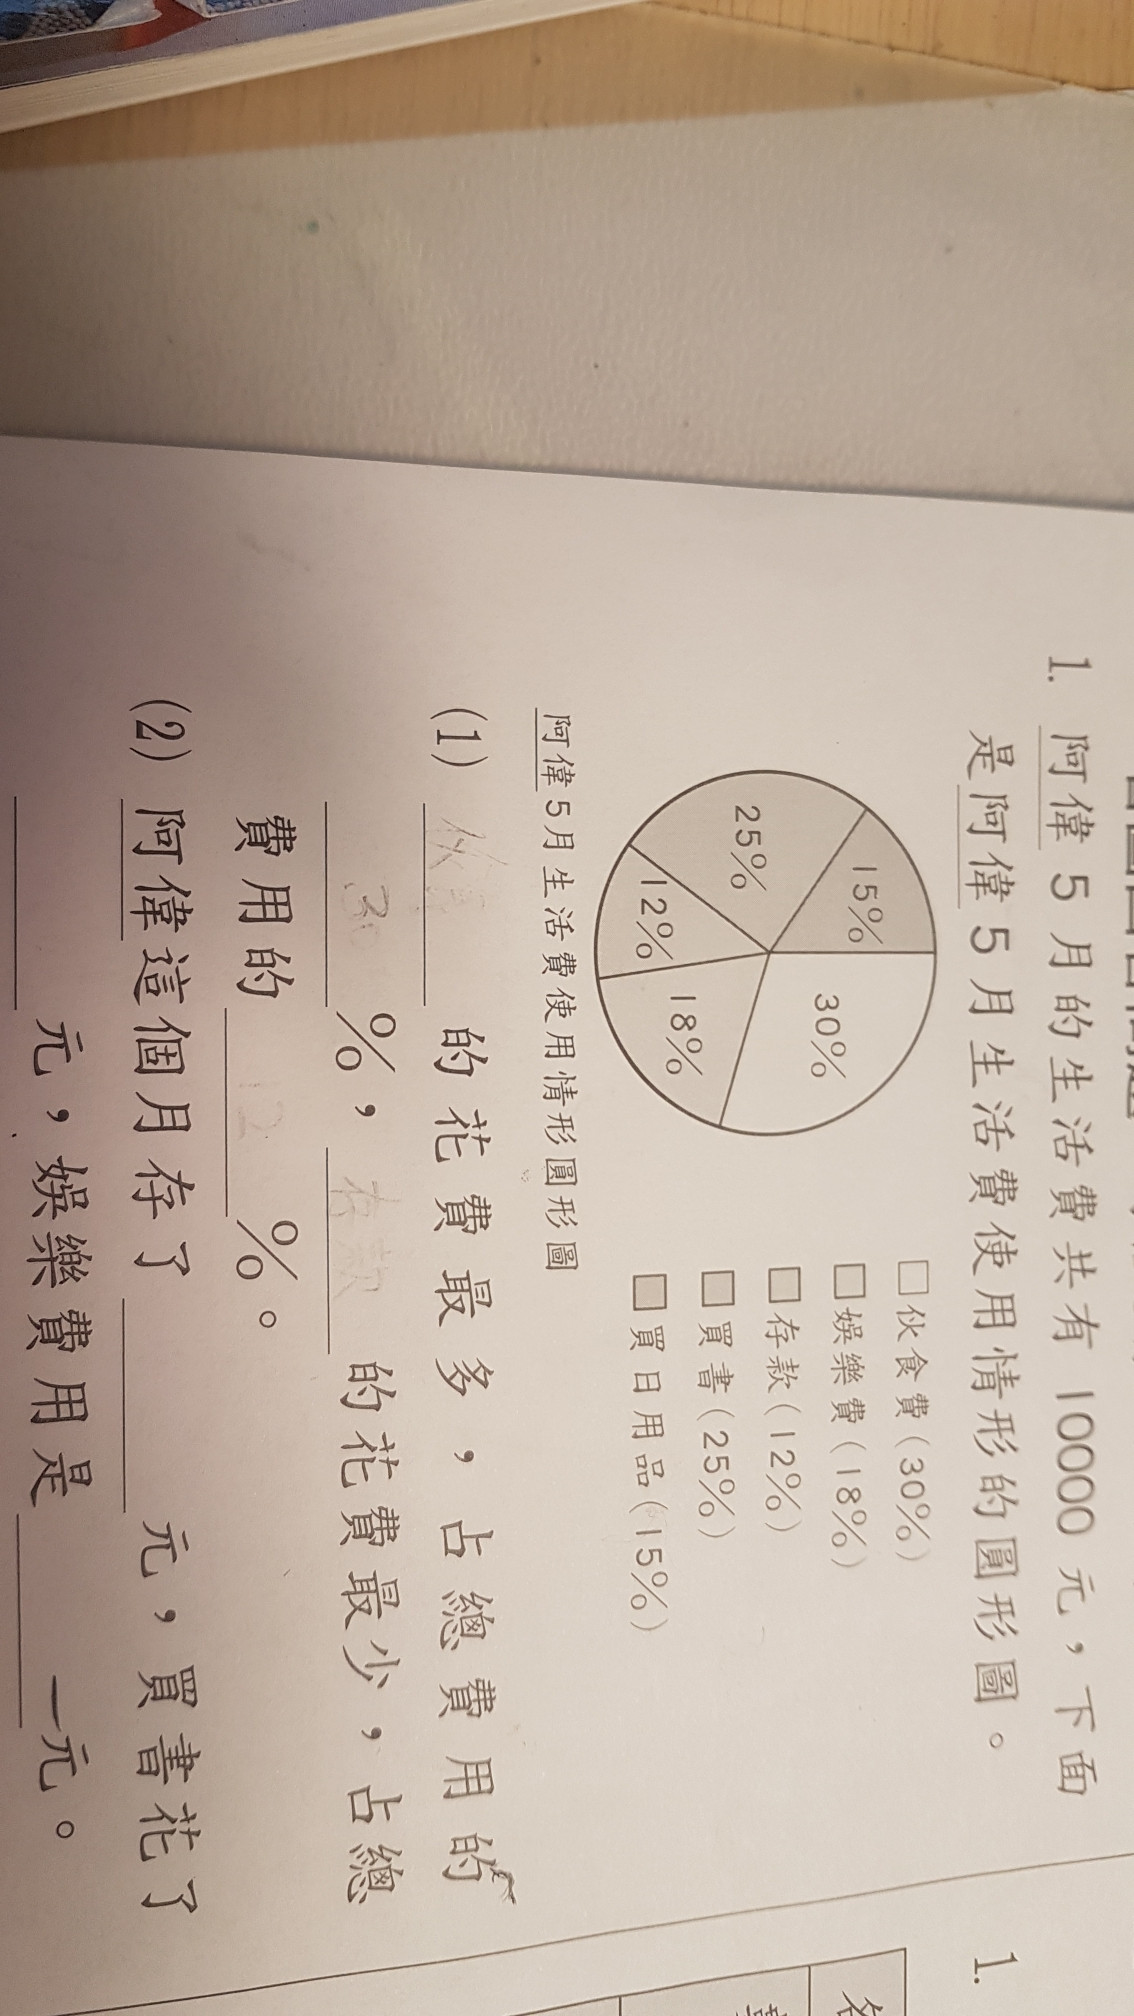 1. 阿偉 5 月的生活費共有 10000 元，下面
是阿偉 5 月生活費使用情形的圓形圖。
15%
30%
25%
12%
18%
□伙食費(30%)
□娛樂費(18%)
□存款(12%)
□買書(25%)
□買日用品(15%)
阿偉5月生活費使用情形圓形圖
(1) 伙食 的花費最多，占總費用的
30 %，存款 的花費最少，占總
費用的 12 %。
(2) 阿偉這個月存了 元，買書花了
元，娛樂費用是 元。
1.